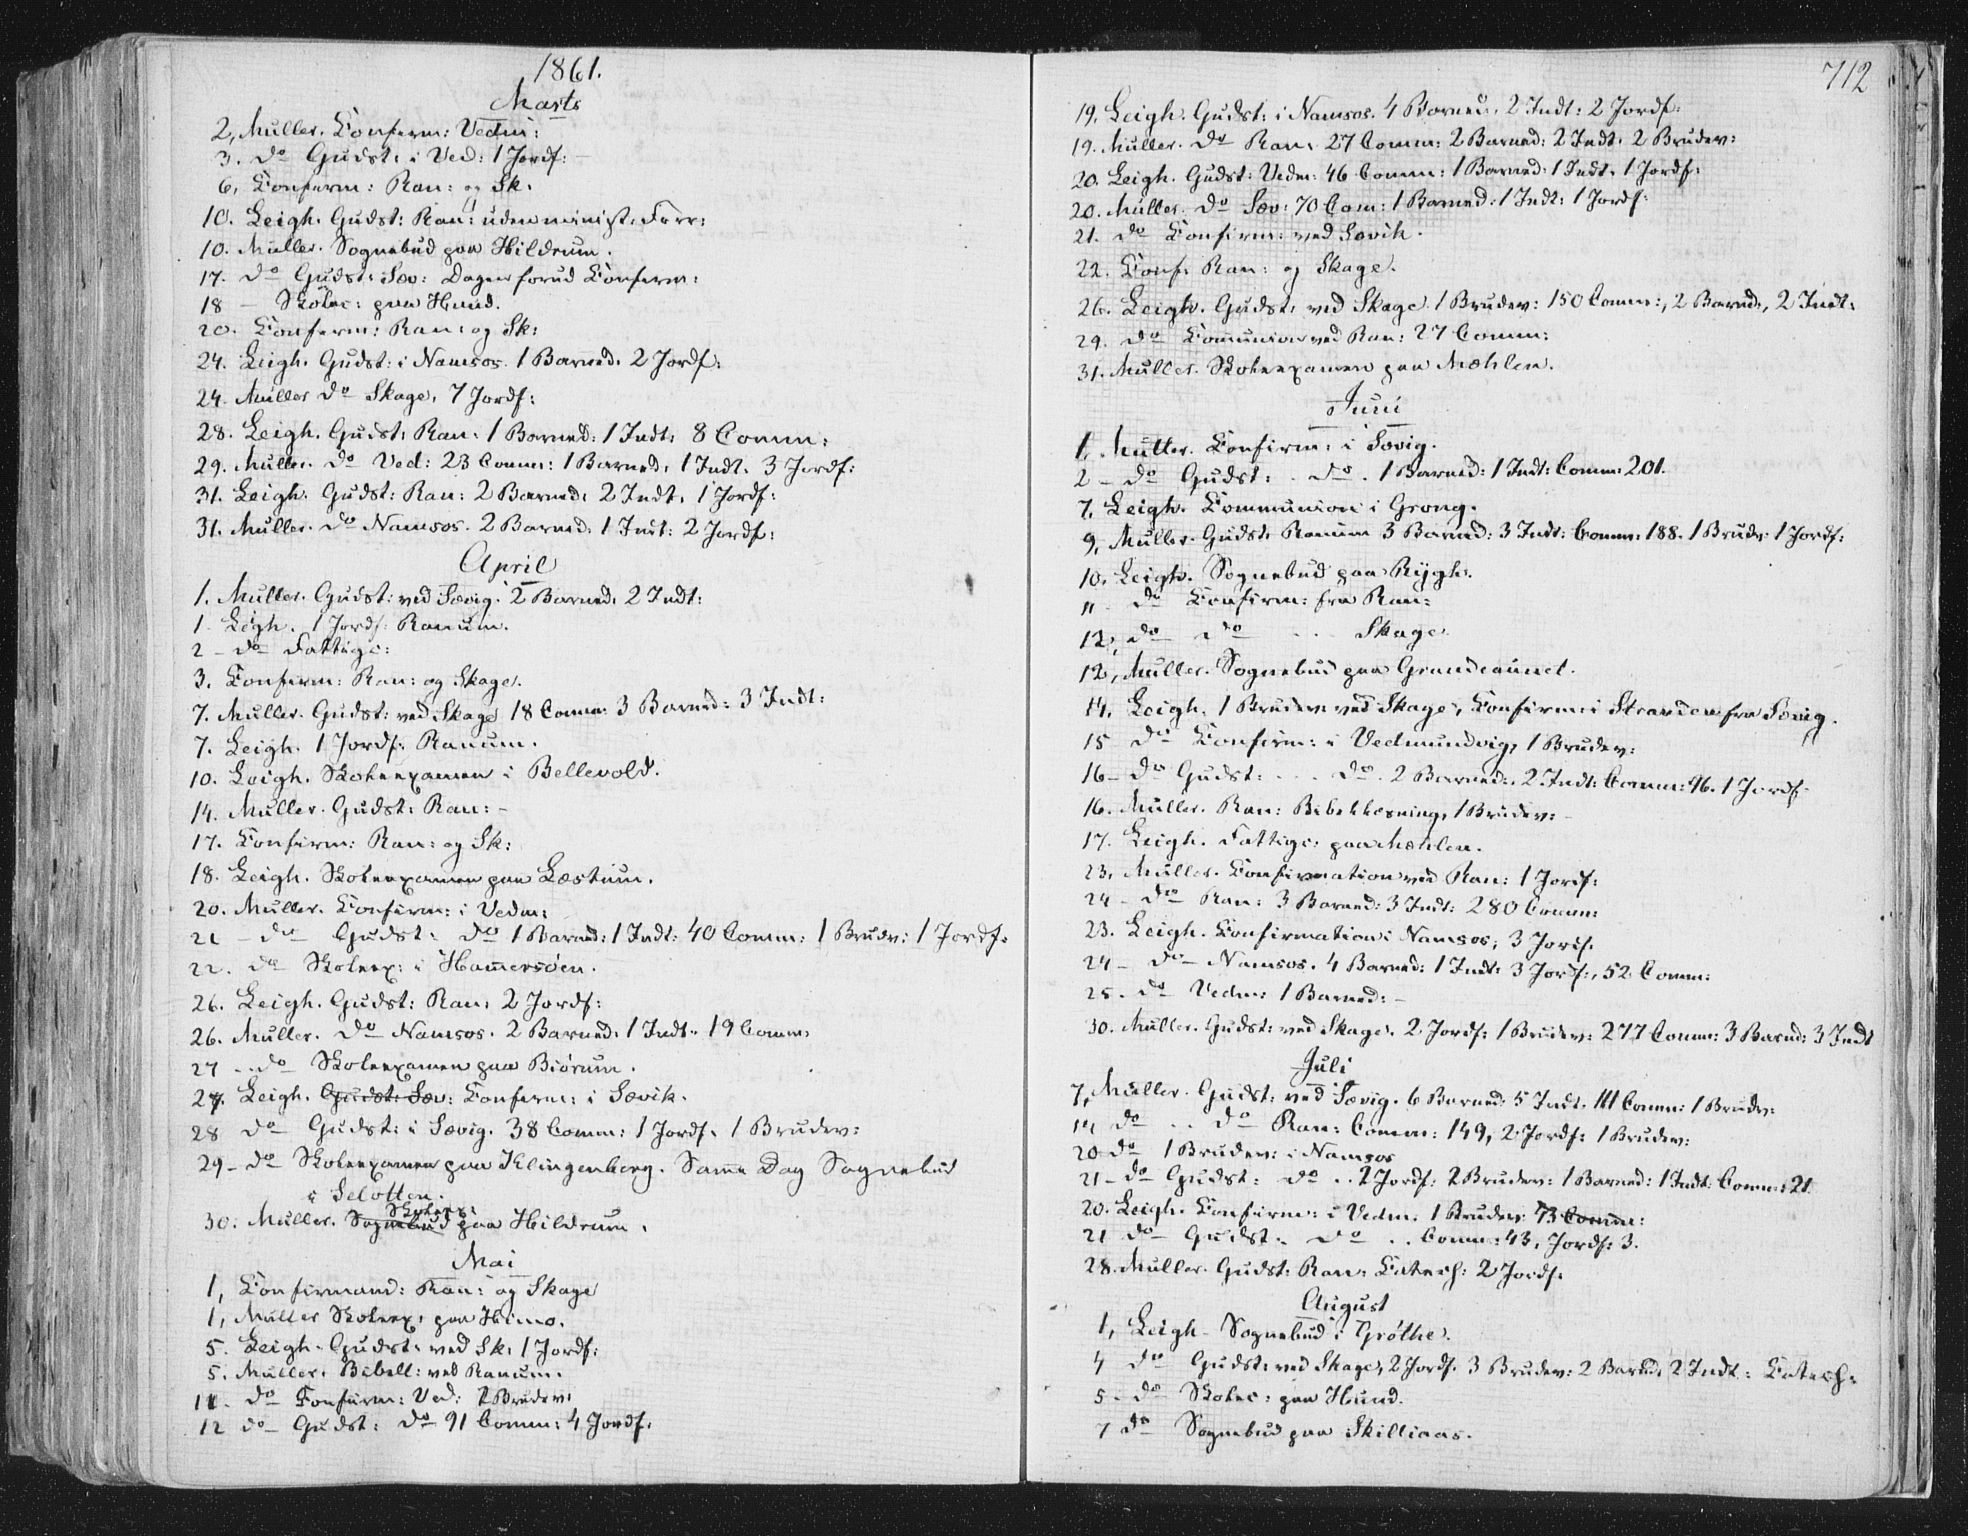 1861.
Marts
2, Müller. Confirm: Vedm:
3. do Gudst: i Ved: 1 Jordf:
6, Confirm: Ran: og Sk.
10. Leigh. Gudst: Ran: uden minist. Forr:
10. Müller. Sognebud paa Hildrum.
17. do Gudst: Sæv: Dagen forud Confirm:
18 – Skolec: paa Hund.
20. Confirm: Ran: og Sk:
24. Leigh. Gudst: i Namsos. 1 Barned. 2 Jordf:
24. Müller do Skage, 7 Jordf:
28. Leigh. Gudst: Ran: 1 Barned: 1 Indt: 8 Comm:
29. Müller. do Ved: 23 Comm: 1 Barned: 1 Indt. 3 Jordf:
31. Leigh. Gudst: Ran: 2 Barned: 2 Indt. 1 Jordf:
31. Müller. do Namsos. 2 Barned: 1 Indt: 2 Jordf:
April
1. Müller. Gudst: ved Sævig. 2 Barned. 2 Indt:
1. Leigh. 1 Jordf: Ranum.
2 – do Fattigc:
3. Confirm: Ran: og Skage.
7. Müller. Gudst: ved Skage 18 Comm: 3 Barned: 3 Indt:
7. Leigh. 1 Jordf: Ranum.
10. Leigh. Skoleexamen i Bellevold.
14. Müller. Gudst: Ran: –
17. Confirm: Ran: og Sk:
18. Leigh. Skoleexamen paa Læstum.
20. Müller. Confirm: i Vedm:
21 – do Gudst: do 1 Barned: 1 Indt: 40 Comm: 1 Brudv: 1 Jordf:
22. do Skoleex: i Hammersøen.
26. Leigh. Gudst: Ran: 2 Jordf:
26. Müller. do Namsos. 2 Barned. 1 Indt. 19 Comm:
27 – do Skoleexamen paa Biørum.
27. Leigh. Gudst: Sæv: Confirm: i Sævik.
28 do Gudst: i Sævig. 38 Comm: 1 Jordf. 1 Brudev:
29 – do Skoleexamen paa Klingenberg. Samme Dag Sognebud
i Seløtten.
Skoleex:
30. Müller. Sognebud paa Hildrum.
Mai
1, Confirmand: Ran: og Skage
1, Müller Skoleex: paa Himo.
5. Leigh. Gudst. ved Sk: 1 Jordf:
5. Müller. Bibell: ved Ranum.
11. do Confirm: Ved: 1 Brudev:
12 do – Gudst: do 91 Comm: 4 Jordf.
712
19. Leigh. Gudst: i Namsos. 4 Barned. 2 Indt: 2 Jordf:
19. Müller. do Ran. 27 Comm: 2 Barned: 2 Indt. 2 Brudev:
20. Leigh. Gudst: Vedm: 46 Comm: 1 Barned: 1 Indt. 1 Jordf:
20. Müller. do Sæv: 70 Com: 1 Barned: 1 Indt: 1 Jordf:
21. do Confirm: ved Sævik.
22. Conf: Ran: og Skage.
26. Leigh. Gudst: ved Skage 1 Brudev: 150 Comm:, 2 Barnd:, 2 Indt:
29. do Communion ved Ran: 27 Comm:
31. Müller. Skoleexamen paa Mæhlen.
Juni
1, Müller. Confirm: i Sævig.
2 – do Gudst: . do . 1 Barned: 1 Indt: Comm: 201.
7, Leigh. Communion i Grong.
9, Müller. Gudst. Ranum 3 Barned: 3 Indt: Comm: 188. 1 Brudv: 1 Jordf:
10. Leigh. Sognebud paa Rygh.
11 – do Confirm: fra Ran:
12, do do . . . Skage.
12, Müller. Sognebud paa Grandeaunet.
14. Leigh. 1 Brudev: ved Skage, Confirm: i Stranden fra Sævig.
15 do Confirm: i Vedmundvig, 1 Brudev:
16 – do Gudst: . . . do. 2 Barned:. 2 Indt: Comm: 96. 1 Jordf.
16. Müller. Ran: Bibellæsning, 1 Brudev: –
17. Leigh. Fattigc: paa Mæhlen.
23, Müller. Confirmation ved Ran: 1 Jordf:
24 – do Ran: 3 Barned: 3 Indt: 280 Comm:
23. Leigh. Confirmation i Namsos, 3 Jordf.
24 – do – Namsos. 4 Barned: 1 Indt: 3 Jordf:, 52 Comm:
25. do Vedm: 1 Barned: –
30. Müller. Gudst: ved Skage. 2 Jordf: 1 Brudev: 277 Comm: 3 Barnd: 3 Indt
Juli
7, Müller. Gudst: ved Sævig. 6 Barned: 5 Indt. 111 Comm: 1 Brudv:
14 do . . do Ran: Comm: 149, 2 Jordf: 1 Brudev:
20 do 1 Brudev: i Namsos
21 – do Gudst: do . . 2 Jordf: 2 Brudev: 1 Barned: 1 Indt: Comm: 21.
20. Leigh. Confirm: i Vedm. 1 Brudev: 73 Comm:
21 do Gudst. do . . Comm: 43, Jordf: 3.
28. Müller. Gudst: Ran: Catech: 2 Jordf:
August
1, Leigh – Sognebud i Grøthe.
4 do Gudst: ved Skage, 2 Jordf. 3 Brudev: 2 Barnd. 2 Indt: Catech:
5 – do Skolec: paa Hund.
7 do Sognebud paa Skilliaas.